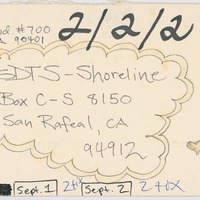 #700
2/2/2
90401
GDTS-Shoreline
Box C-S 8150
San Rafeal, CA
94912
Sept. 1 2+1x Sept. 2 2+0x